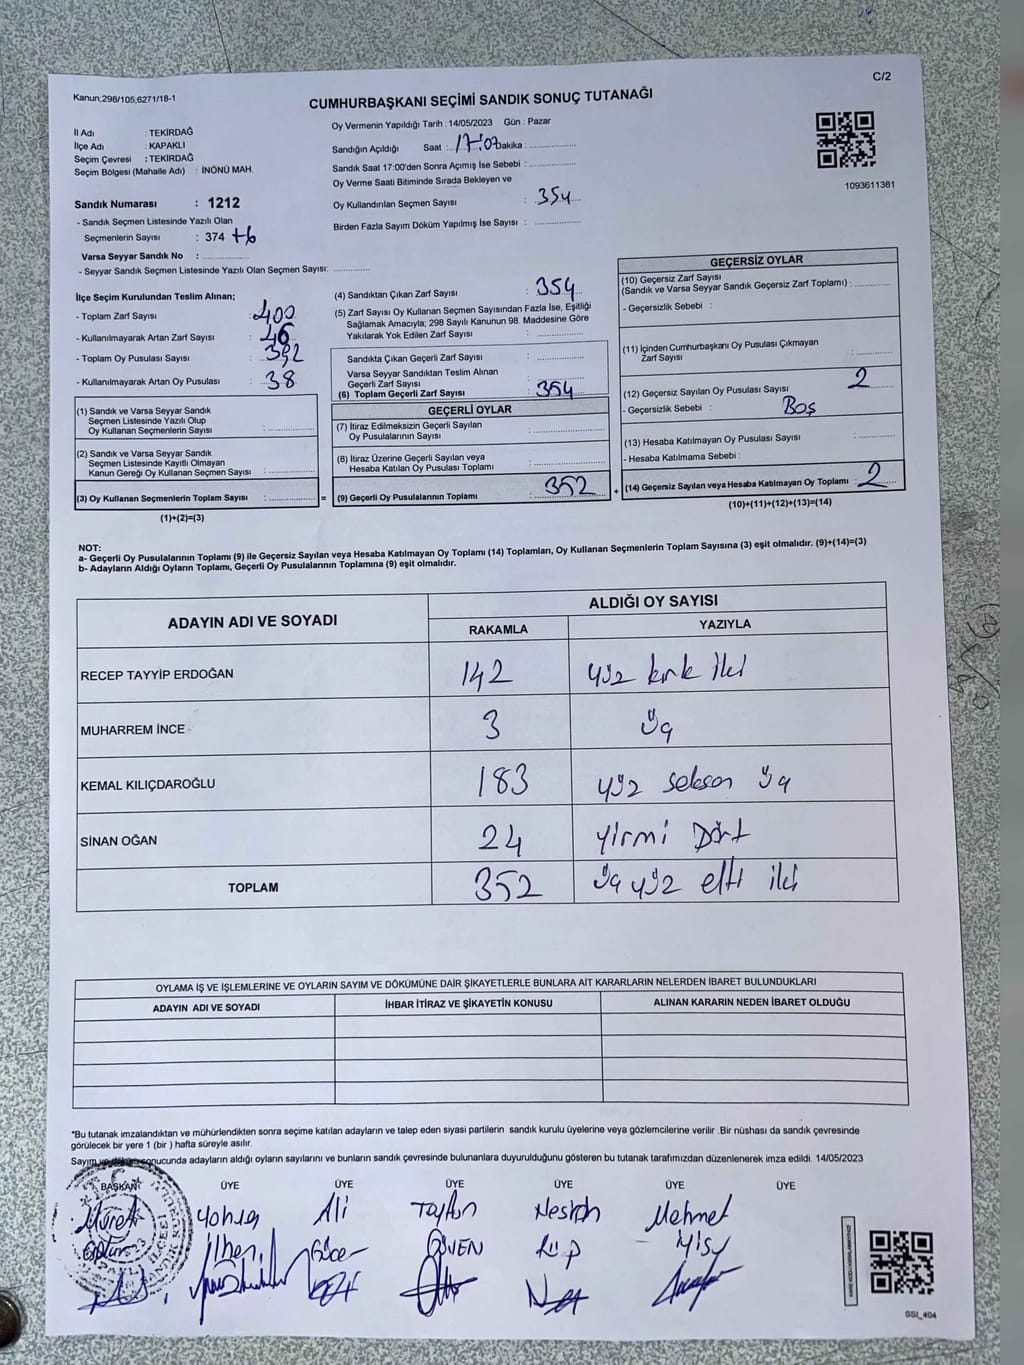 C/2
Kanun;298/105,6271/18-1
CUMHURBAŞKANI SEÇİMİ SANDIK SONUÇ TUTANAĞI
İl Adı : TEKİRDAĞ
İlçe Adı : KAPAKLI
Seçim Çevresi : TEKİRDAĞ
Seçim Bölgesi (Mahalle Adı) : İNÖNÜ MAH.
Sandık Numarası : 1212
- Sandık Seçmen Listesinde Yazılı Olan
Seçmenlerin Sayısı : 374 +6
Varsa Seyyar Sandık No : ..............
- Seyyar Sandık Seçmen Listesinde Yazılı Olan Seçmen Sayısı: ............
Oy Vermenin Yapıldığı Tarih : 14/05/2023 Gün : Pazar
Sandığın Açıldığı Saat : 17:07 Dakika : ..............
Sandık Saat 17:00'den Sonra Açımış İse Sebebi : ..............
Oy Verme Saati Bitiminde Sırada Bekleyen ve
Oy Kullandırılan Seçmen Sayısı : 354
Birden Fazla Sayım Döküm Yapılmış İse Sayısı : ..............
1093611381
İlçe Seçim Kurulundan Teslim Alınan;
- Toplam Zarf Sayısı : 400
- Kullanılmayarak Artan Zarf Sayısı : 46
- Toplam Oy Pusulası Sayısı : 392
- Kullanılmayarak Artan Oy Pusulası : 38
(1) Sandık ve Varsa Seyyar Sandık
Seçmen Listesinde Yazılı Olup
Oy Kullanan Seçmenlerin Sayısı : ..............
(2) Sandık ve Varsa Seyyar Sandık
Seçmen Listesinde Kayıtlı Olmayan
Kanun Gereği Oy Kullanan Seçmen Sayısı : ..............
(3) Oy Kullanan Seçmenlerin Toplam Sayısı : .............. =
(1)+(2)=(3)
(4) Sandıktan Çıkan Zarf Sayısı : 354
(5) Zarf Sayısı Oy Kullanan Seçmen Sayısından Fazla İse, Eşitliği
Sağlamak Amacıyla; 298 Sayılı Kanunun 98. Maddesine Göre
Yakılarak Yok Edilen Zarf Sayısı : ..............
Sandıkta Çıkan Geçerli Zarf Sayısı : ..............
Varsa Seyyar Sandıktan Teslim Alınan
Geçerli Zarf Sayısı : ..............
(6) Toplam Geçerli Zarf Sayısı : 354
GEÇERLİ OYLAR
(7) İtiraz Edilmeksizin Geçerli Sayılan
Oy Pusulalarının Sayısı : ..............
(8) İtiraz Üzerine Geçerli Sayılan veya
Hesaba Katılan Oy Pusulası Toplamı : ..............
(9) Geçerli Oy Pusulalarının Toplamı : 352 +
GEÇERSİZ OYLAR
(10) Geçersiz Zarf Sayısı
(Sandık ve Varsa Seyyar Sandık Geçersiz Zarf Toplamı) : ............
- Geçersizlik Sebebi :
(11) İçinden Cumhurbaşkanı Oy Pusulası Çıkmayan
Zarf Sayısı : ............
(12) Geçersiz Sayılan Oy Pusulası Sayısı : 2
- Geçersizlik Sebebi : Boş
(13) Hesaba Katılmayan Oy Pusulası Sayısı : ............
- Hesaba Katılmama Sebebi :
(14) Geçersiz Sayılan veya Hesaba Katılmayan Oy Toplamı : 2
(10)+(11)+(12)+(13)=(14)
NOT:
a- Geçerli Oy Pusulalarının Toplamı (9) ile Geçersiz Sayılan veya Hesaba Katılmayan Oy Toplamı (14) Toplamları, Oy Kullanan Seçmenlerin Toplam Sayısına (3) eşit olmalıdır. (9)+(14)=(3)
b- Adayların Aldığı Oyların Toplamı, Geçerli Oy Pusulalarının Toplamına (9) eşit olmalıdır.
ADAYIN ADI VE SOYADI
ALDIĞI OY SAYISI
RAKAMLA YAZIYLA
RECEP TAYYİP ERDOĞAN 142 yüz kırk iki
MUHARREM İNCE 3 üç
KEMAL KILIÇDAROĞLU 183 yüz seksen üç
SİNAN OĞAN 24 yirmi Dört
TOPLAM 352 üç yüz elli iki
OYLAMA İŞ VE İŞLEMLERİNE VE OYLARIN SAYIM VE DÖKÜMÜNE DAİR ŞİKAYETLERLE BUNLARA AİT KARARLARIN NELERDEN İBARET BULUNDUKLARI
ADAYIN ADI VE SOYADI İHBAR İTİRAZ VE ŞİKAYETİN KONUSU ALINAN KARARIN NEDEN İBARET OLDUĞU
*Bu tutanak imzalandıktan ve mühürlendikten sonra seçime katılan adayların ve talep eden siyasi partilerin sandık kurulu üyelerine veya gözlemcilerine verilir .Bir nüshası da sandık çevresinde
görülecek bir yere 1 (bir ) hafta süreyle asılır.
Sayım ve döküm sonucunda adayların aldığı oyların sayılarını ve bunların sandık çevresinde bulunanlara duyurulduğunu gösteren bu tutanak tarafımızdan düzenlenerek imza edildi. 14/05/2023
BAŞKAN ÜYE ÜYE ÜYE ÜYE ÜYE ÜYE
Ali Tayfun Mehmet
ilhen Güce GÜVEN
SSI_404